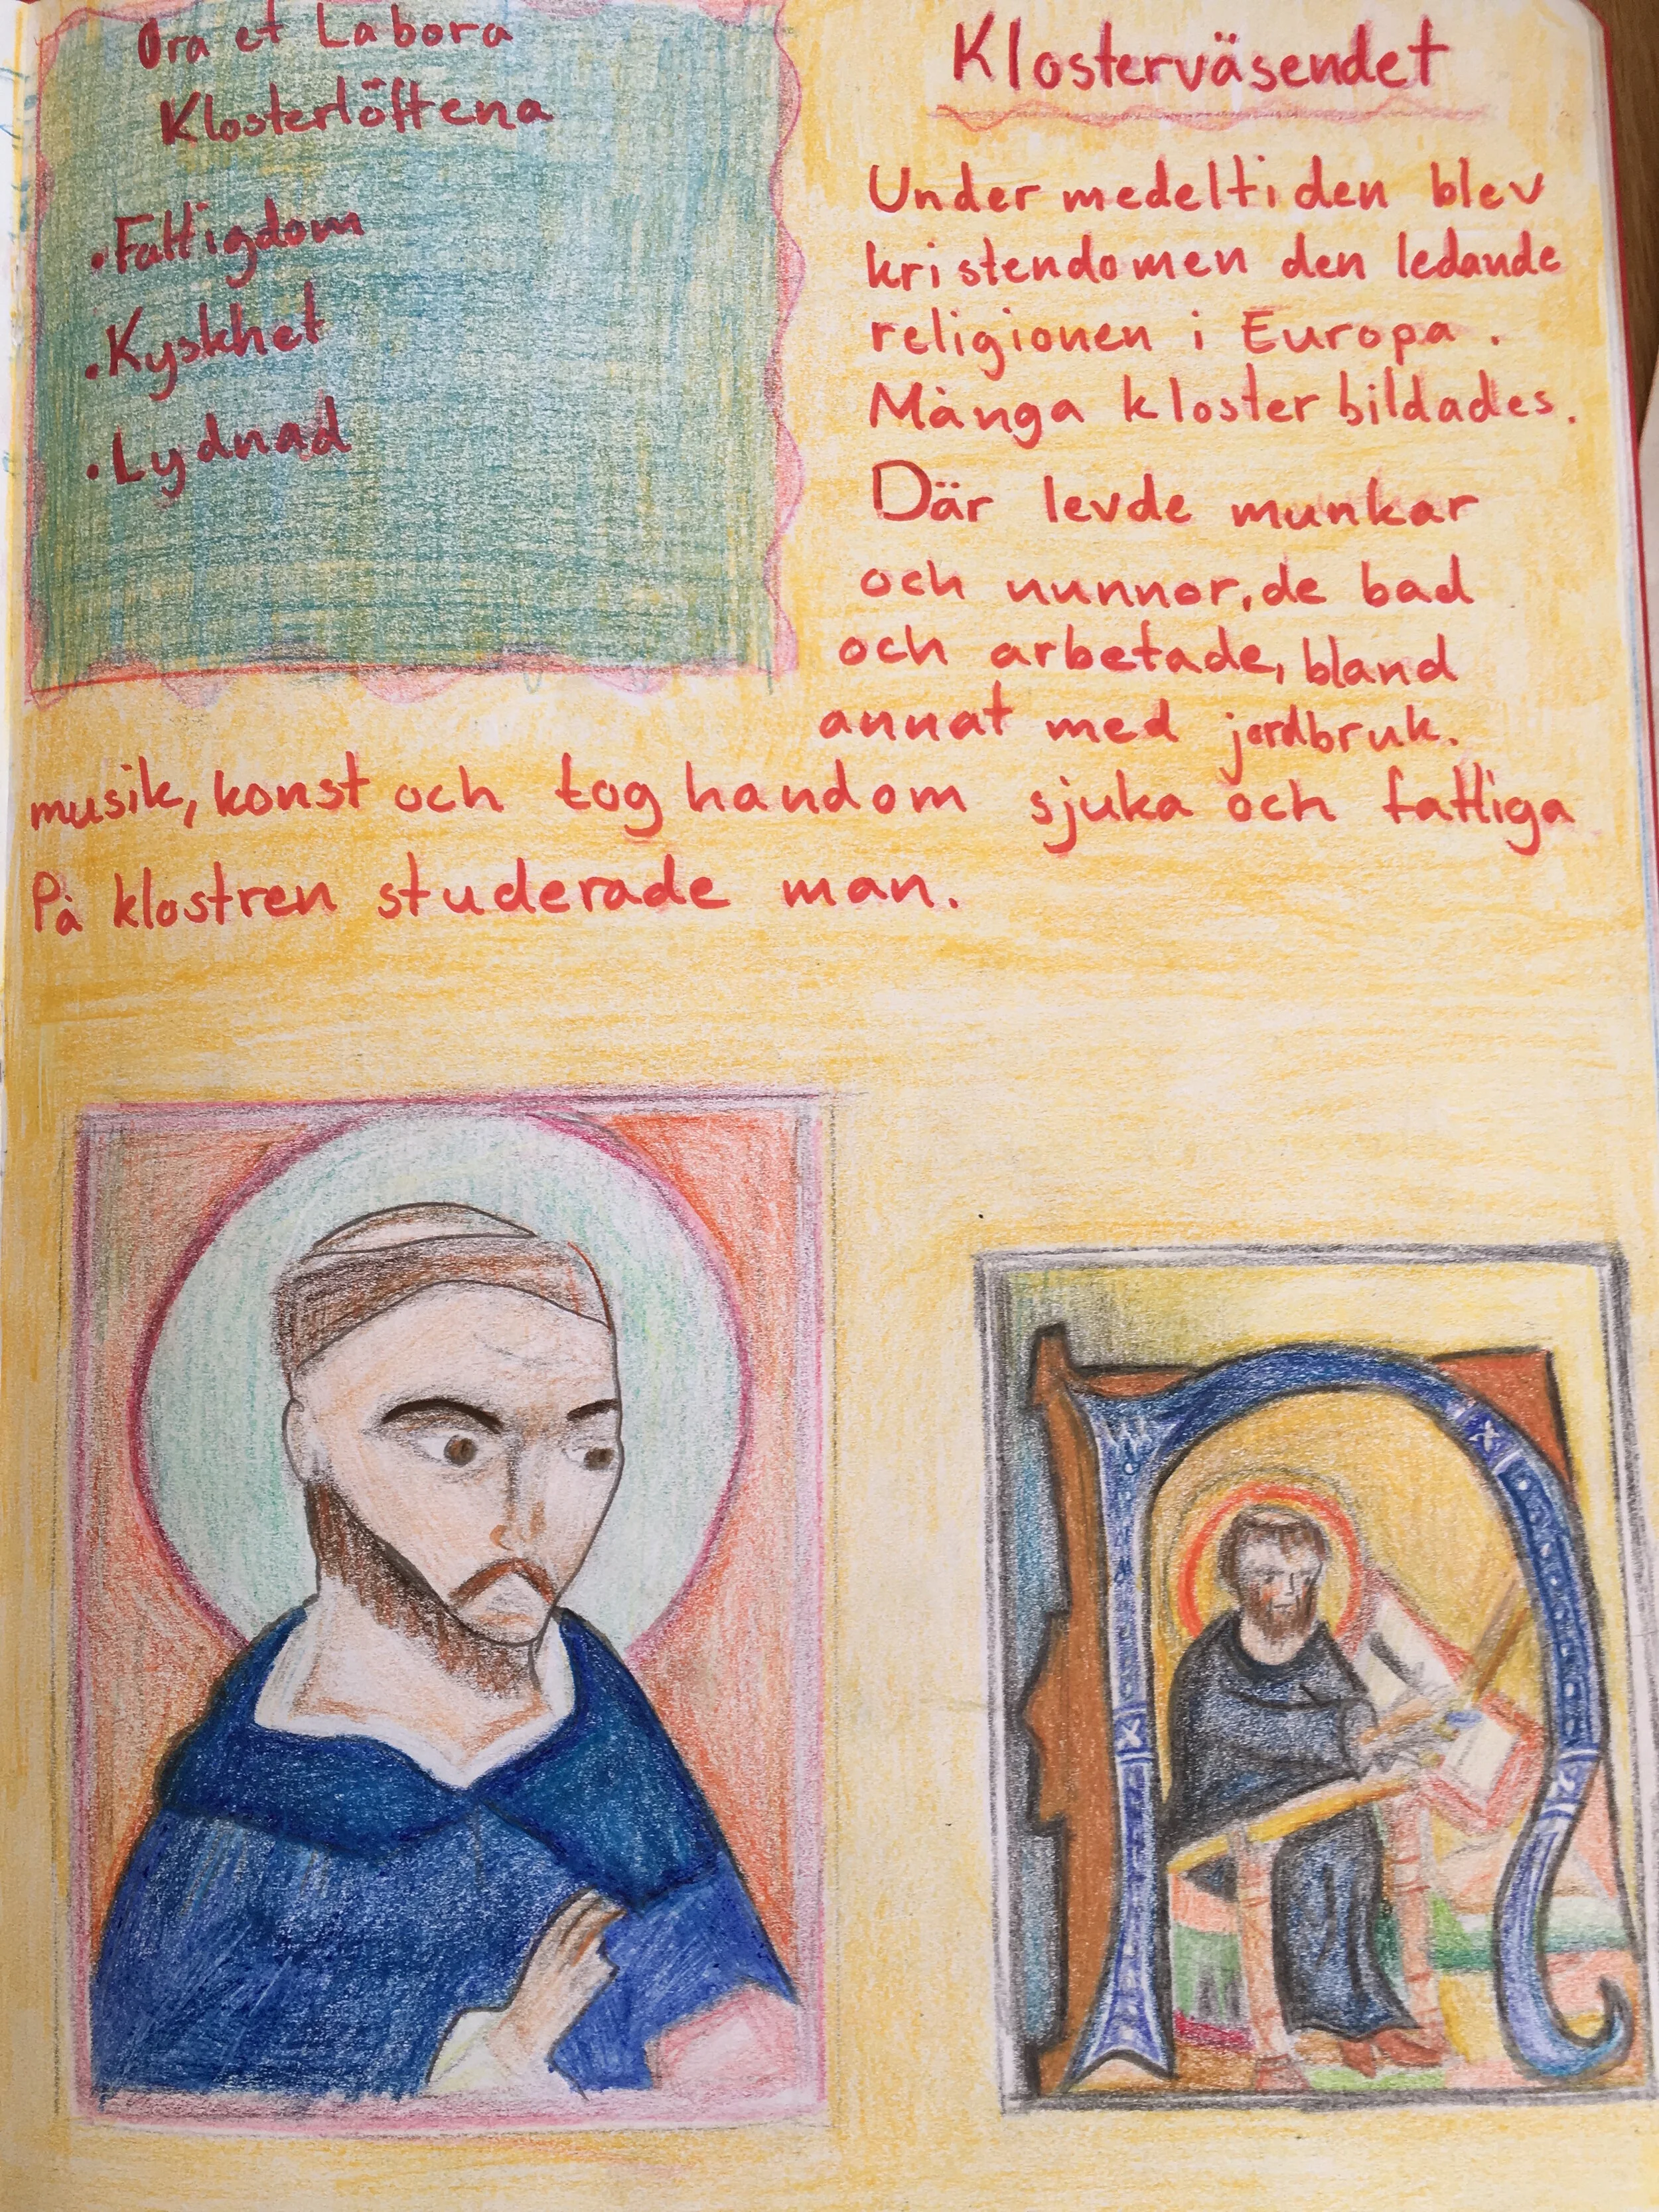 Ora et Labora
Klosterlöftena
•Fattigdom
•Kyskhet
•Lydnad
Klosterväsendet
Under medeltiden blev
kristendomen den ledande
religionen i Europa.
Många kloster bildades.
Där levde munkar
och nunnor, de bad
och arbetade, bland
annat med jordbruk.
musik, konst och tog handom sjuka och fattiga
På klostren studerade man.